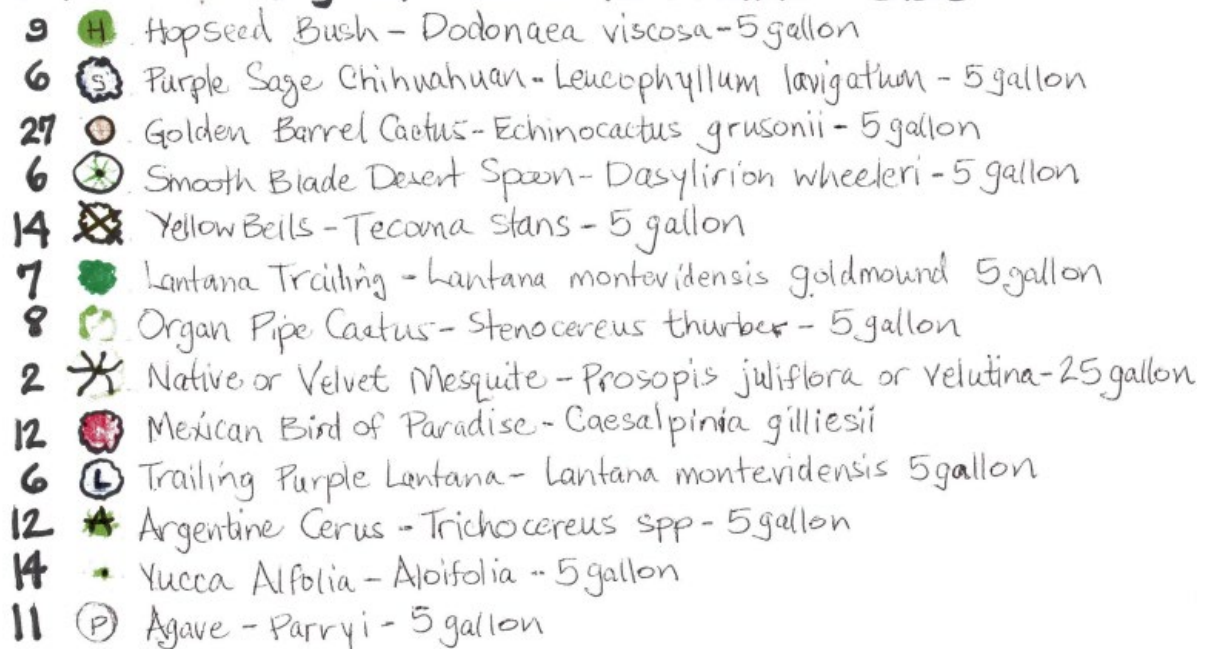 9 H Hopseed Bush - Dodonaea viscosa - 5 gallon
6 S Purple Sage Chihuahuan - Leucophyllum lavigatum - 5 gallon
27 Golden Barrel Cactus - Echinocactus grusonii - 5 gallon
6 Smooth Blade Desert Spoon - Dasylirion wheeleri - 5 gallon
14 Yellow Bells - Tecoma stans - 5 gallon
7 Lantana Trailing - Lantana montevidensis goldmound 5 gallon
8 Organ Pipe Cactus - Stenocereus thurber - 5 gallon
2 Native or Velvet Mesquite - Prosopis juliflora or velutina - 25 gallon
12 Mexican Bird of Paradise - Caesalpinia gilliesii
6 L Trailing Purple Lantana - Lantana montevidensis 5 gallon
12 A Argentine Cerus - Trichocereus spp - 5 gallon
14 Yucca Alfolia - Aloifolia - 5 gallon
11 P Agave - Parryi - 5 gallon